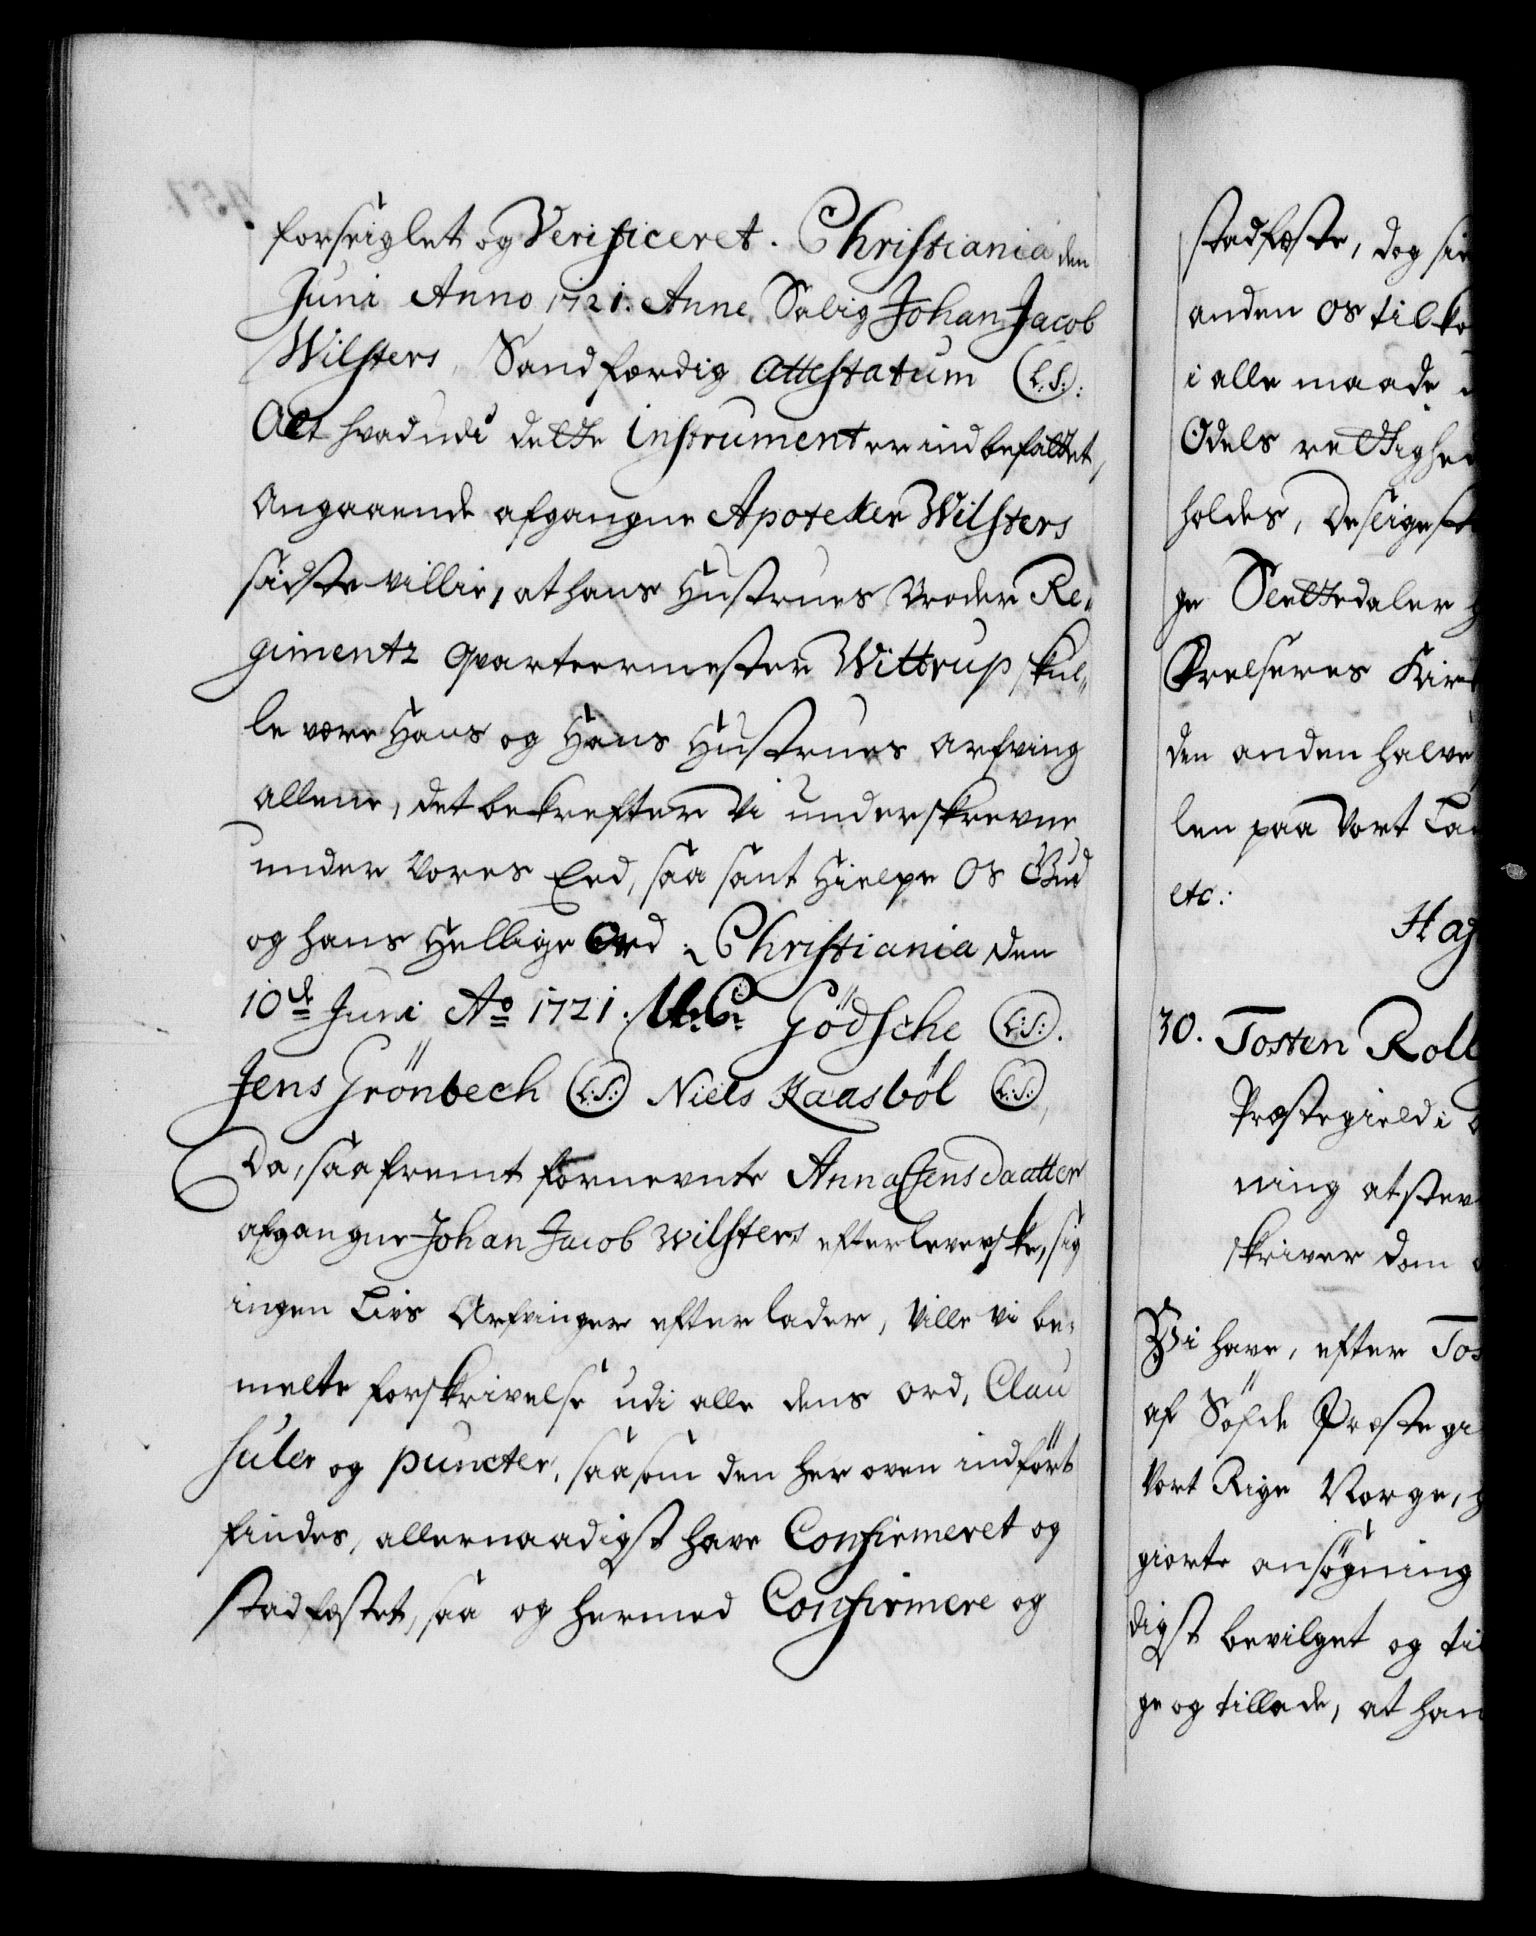 forseiglet og Verificeret. Christiania den
Juni Anno 1721. Anne Salig Johan Jacob
Wilsters, Sandfærdig attestatum (L.S.):
Alt hvad udi dette instrument er indbefattet,
Angaaende afgangne Apoteker Wilsters
sidste villie, at hans Hustrues Broder Re-
gimentz qvarteermester Wittrup skul-
le være Hans og Hans Hustrues arfving
allene, det bekrefter Vi underskrevne
under Vores Eed, saa sant Hielpe Os Gud
og hans Hellige Ord: Christiania den
10de Juni Ao 1721. Gödsche (L:S:).
Jens Grönbech (L:S:) Niels Kaasböl (L:S:),
Da, saafremt fornevnte Anna Jensdaatter
afgangne Johan Jacob Wilsters efterleverske, sig
ingen Livs Arfvinger efterlader, ville vi be-
melte forskrivelse udi alle dens ord, Clau
suler og puncter, saasom den her oven indført
findes, allernaadigst have Confirmeret og
stadfæstet, saa og hermed Confirmere og
stadfæste, dog
anden os tilko
i alle maade
Odels rettighed
holdes, Desligeste
ge Slettedaler
Frelseres Kir
den anden halve
len paa Vort La
etc:
Haf
30. Tosten Roll
Præstegield i
ning at stev
skriver dom
Vi have, efter Tos
af Söfde Præstegi
Vort Rige Norge,
giorte ansøgning
digst bevilget og til
ge og tillade, at han